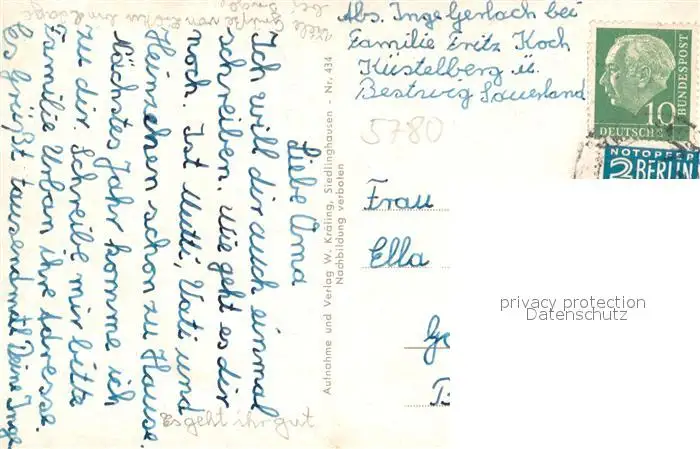 Liebe Oma
Ich will dir auch einmal
schreiben. Wie geht es dir
noch. Ist Mutti, Vati und
Heinzchen schon zu Hause.
Nächstes Jahr komme ich
zu dir. Schreibe mir bitte
Familie Urban ihre Adresse.
Es grüßt tausendmal Deine Inge
Viele Grüße von
Es geht ihr gut
Aufnahme und Verlag W. Kräling, Siedlinghausen - Nr. 434
Nachbildung verboten
Abs. Inge Gerlach bei
Familie Fritz Koch
Küstelberg ü.
Bestwig Sauerland
5780
10
DEUTSCHE
BUNDESPOST
NOTOPFER
2 BERLIN
Frau
Ella
privacy protection
Datenschutz